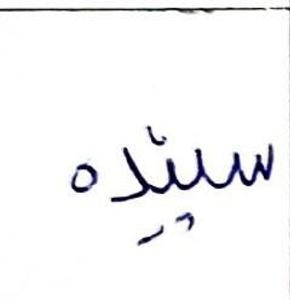 سیِّده